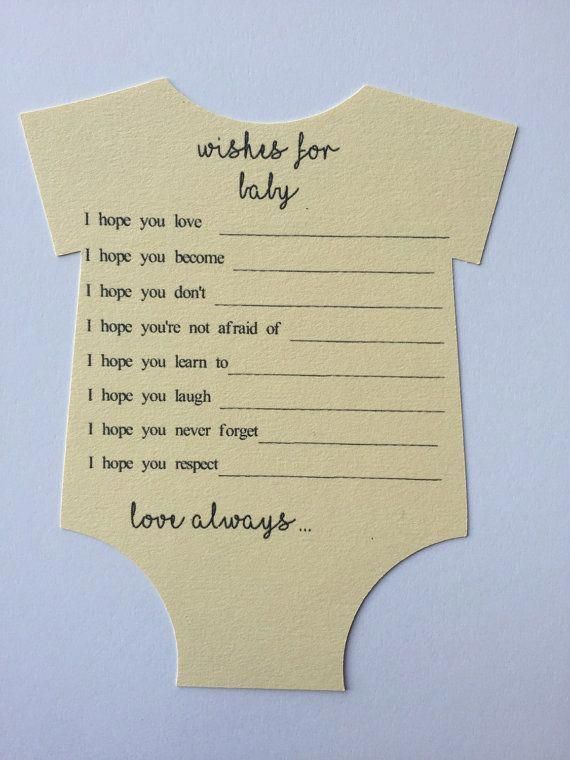 wishes for
baby
I hope you love
I hope you become
I hope you don't
I hope you're not afraid of
I hope you learn to
I hope you laugh
I hope you never forget
I hope you respect
love always...